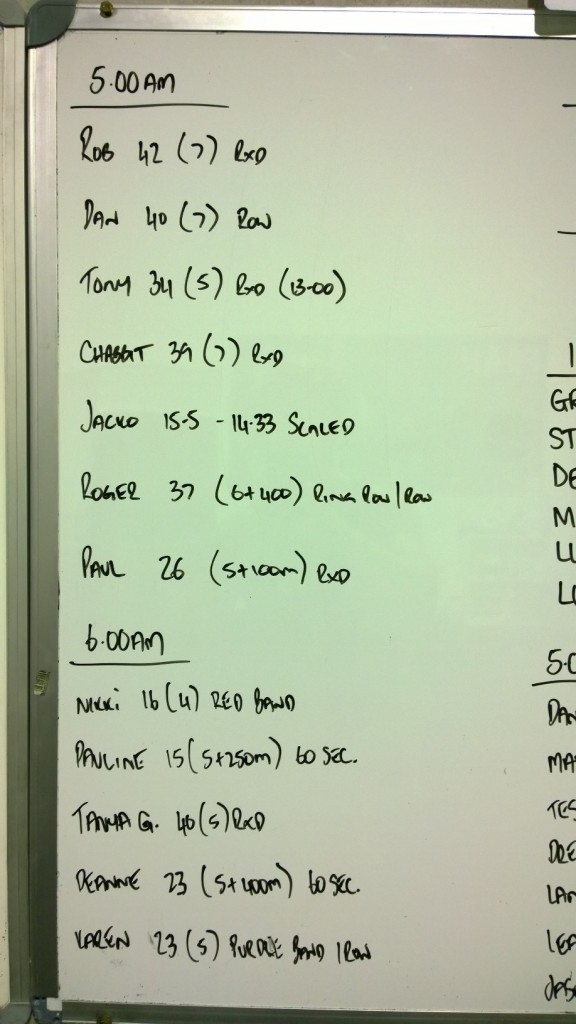 5.00AM
ROB 42 (7) RXD
DAN 40 (7) ROW
TONY 34 (5) RXD (13.00)
CHABBIT 39 (7) RXD
JACKO 15.5 - 14.33 SCALED
ROGER 37 (6+400) RING ROW/ROW
PAUL 26 (5+100m) RXD
6.00AM
NIKKi 16 (4) RED BAND
PAULINE 15 (5+250m) 60 SEC.
TANYA G. 40 (5) RXD
DEANNE 23 (5+400m) 60 SEC.
KAREN 23 (5) PURPLE BAND/ROW
1
GR
ST
DE
M
LU
5.0
DAN
MA
TES
DRE
LAN
LEA
JAS